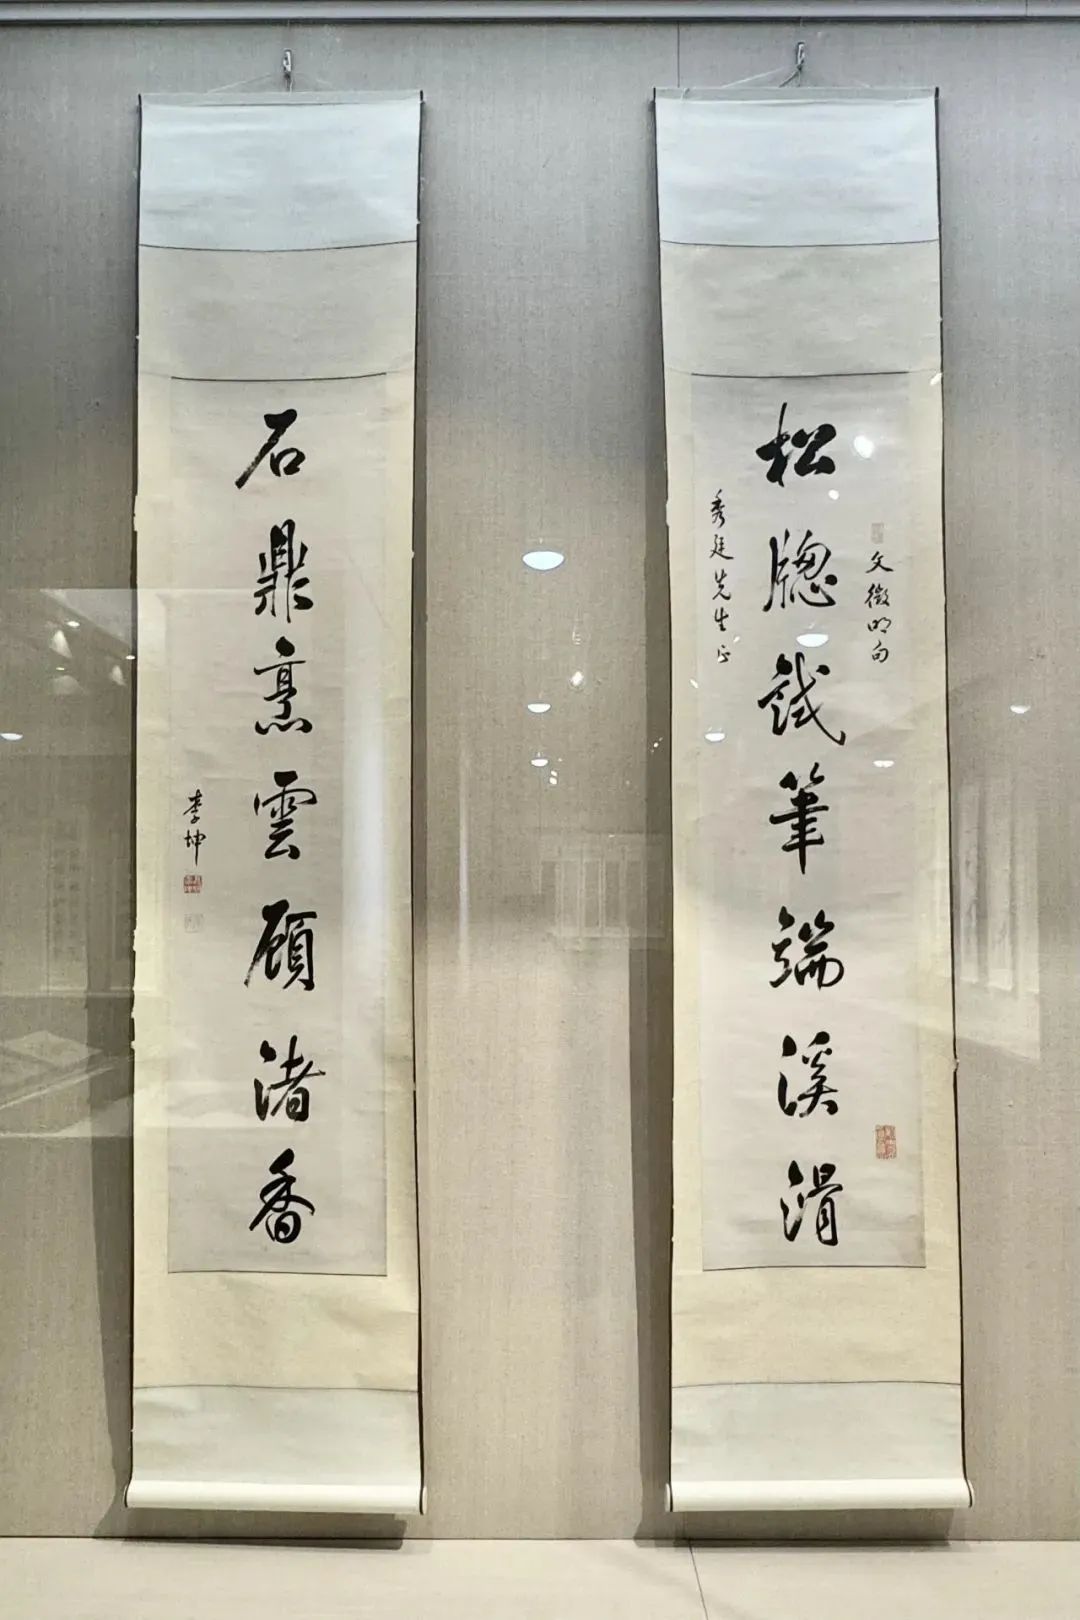 松牕試筆端溪滑
文徵明句
秀廷先生正
石鼎烹雲顧渚香
李坤